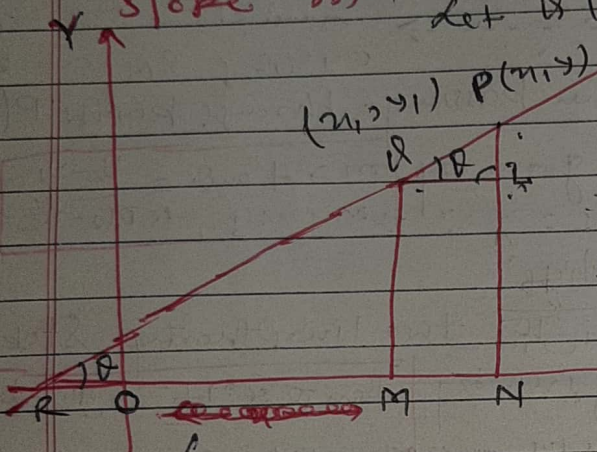 Y Slope
Let
(x₁, y₁) P(x, y)
Q θ L
θ
R O M N